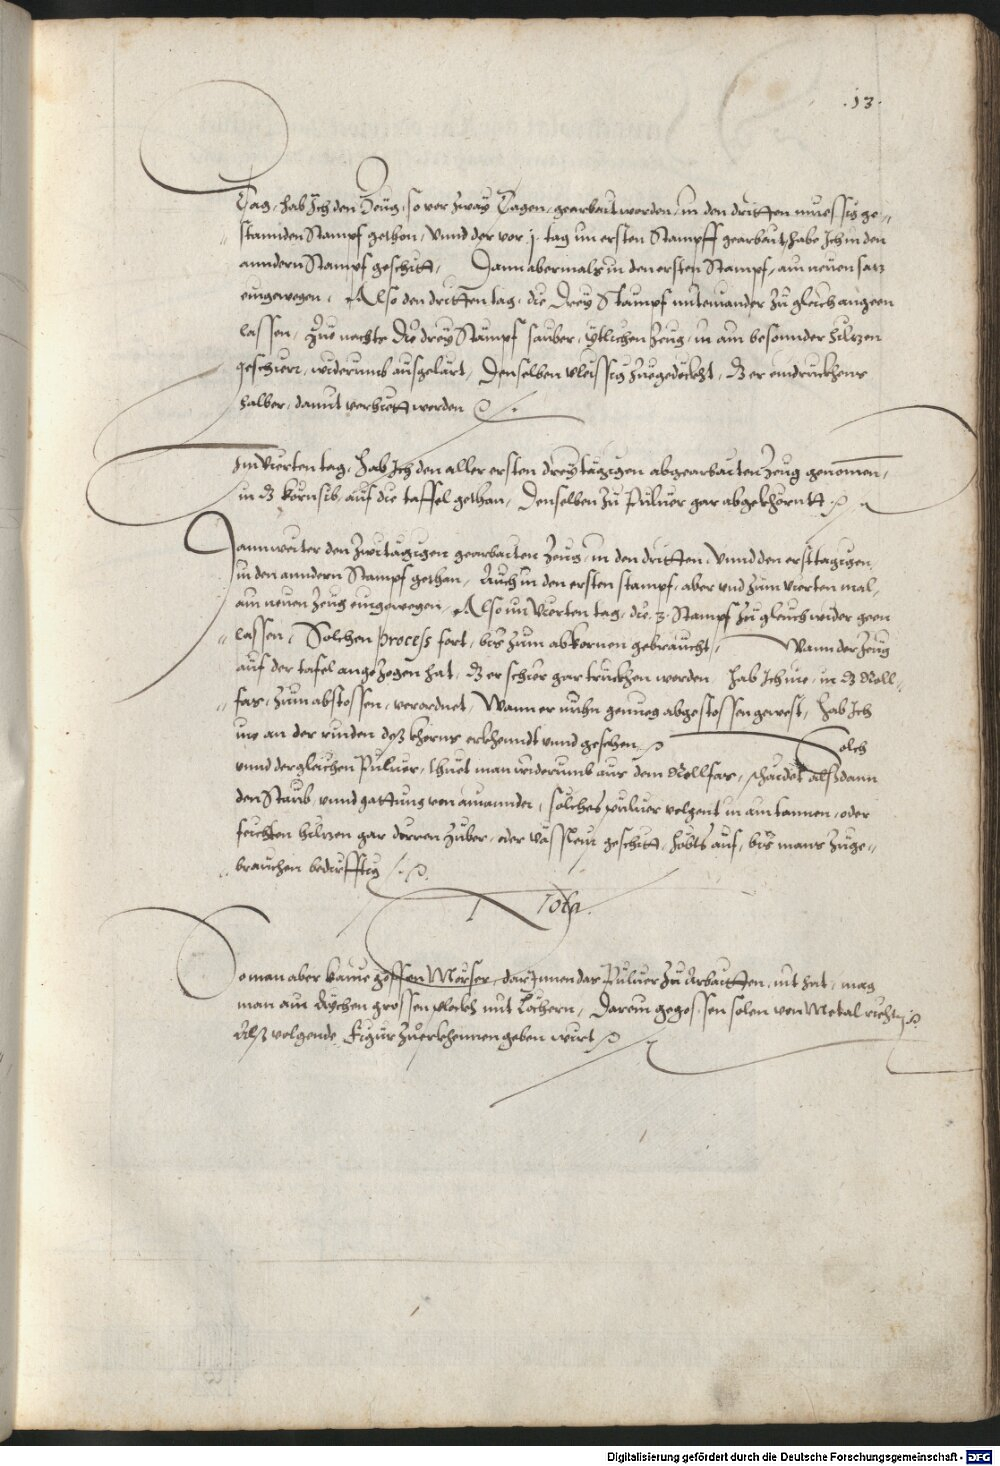 .13.
Tag, hab Ich den Zeug, so vor zway Tagen, gearbait worden, in den dritten muessig ge„
„ stannden Stampf gethon, Vnnd der vor j. tag im ersten Stampff gearbait, habe Ich in den
anndern Stampf geschitt, Dann abermals in den ersten Stampf, ain neuen satz
eingewegen. Also den dritten tag, die Drey Stampf miteinander zu gleich angeen
lassen, Zue nachts die drey Stämpf sauber, Ytlichen Zeug, in ain besonnder hiltzen
geschierr, widerumb ausgelärt, Denselben vleissig zuegedeckht, dz er eindruckhens
halber, damit verhuett werden
Im Vierten tag, Hab Ich den aller ersten dreytägigen abgearbaiten Zeug genomen,
in dz kornsib, auf die taffel gethan, Denselben zu Puluer gar abgekhörntt
Dann weiter den Zwitägigen gearbaiten Zeug, in den dritten, Vnnd den ersttagigen,
in den anndern Stampf gethan, Auch in den ersten stampf, aber vnd zum vierten mal,
ain neuen Zeug eingewegen, Also im Vierten tag, die .3. Stampf zu gleich wider geen
„ lassen, Solchen process fort, bis zum abkornen gebraucht, Wann der Zeug
auf der tafel angezogen hat, dz er schier gar truckhen worden, hab Ich ine, in dz Roll„
„ fas, zum abstossen, verordnet, Wann er nuhn genueg abgestossen gewest, hab Ich
ine an der rinden deß khorns erkhenndt vnnd gesehen Solch
vnnd dergleichen Puluer, thuet man widerumb aus dem Rollfas, schaidet alßdann
den Staub, vnnd gattung von ainannder, solches puluer volgent in ain tannen, oder
feichten hiltzen gar dorren Zuber, oder väßlein geschitt, hebts auf, bis mans zuge„
„ brauchen bedürfftig
Nota.
So man aber kaine gossen Mörser, darInnen das Puluer zu Arbaitten, nit hat, mag
man ain Aychen grossen plockh mit Löchern, Darein gegossen solen von Metal richten
Alß volgende Figur zuerkhennen geben wirt
Digitalisierung gefördert durch die Deutsche Forschungsgemeinschaft - DFG